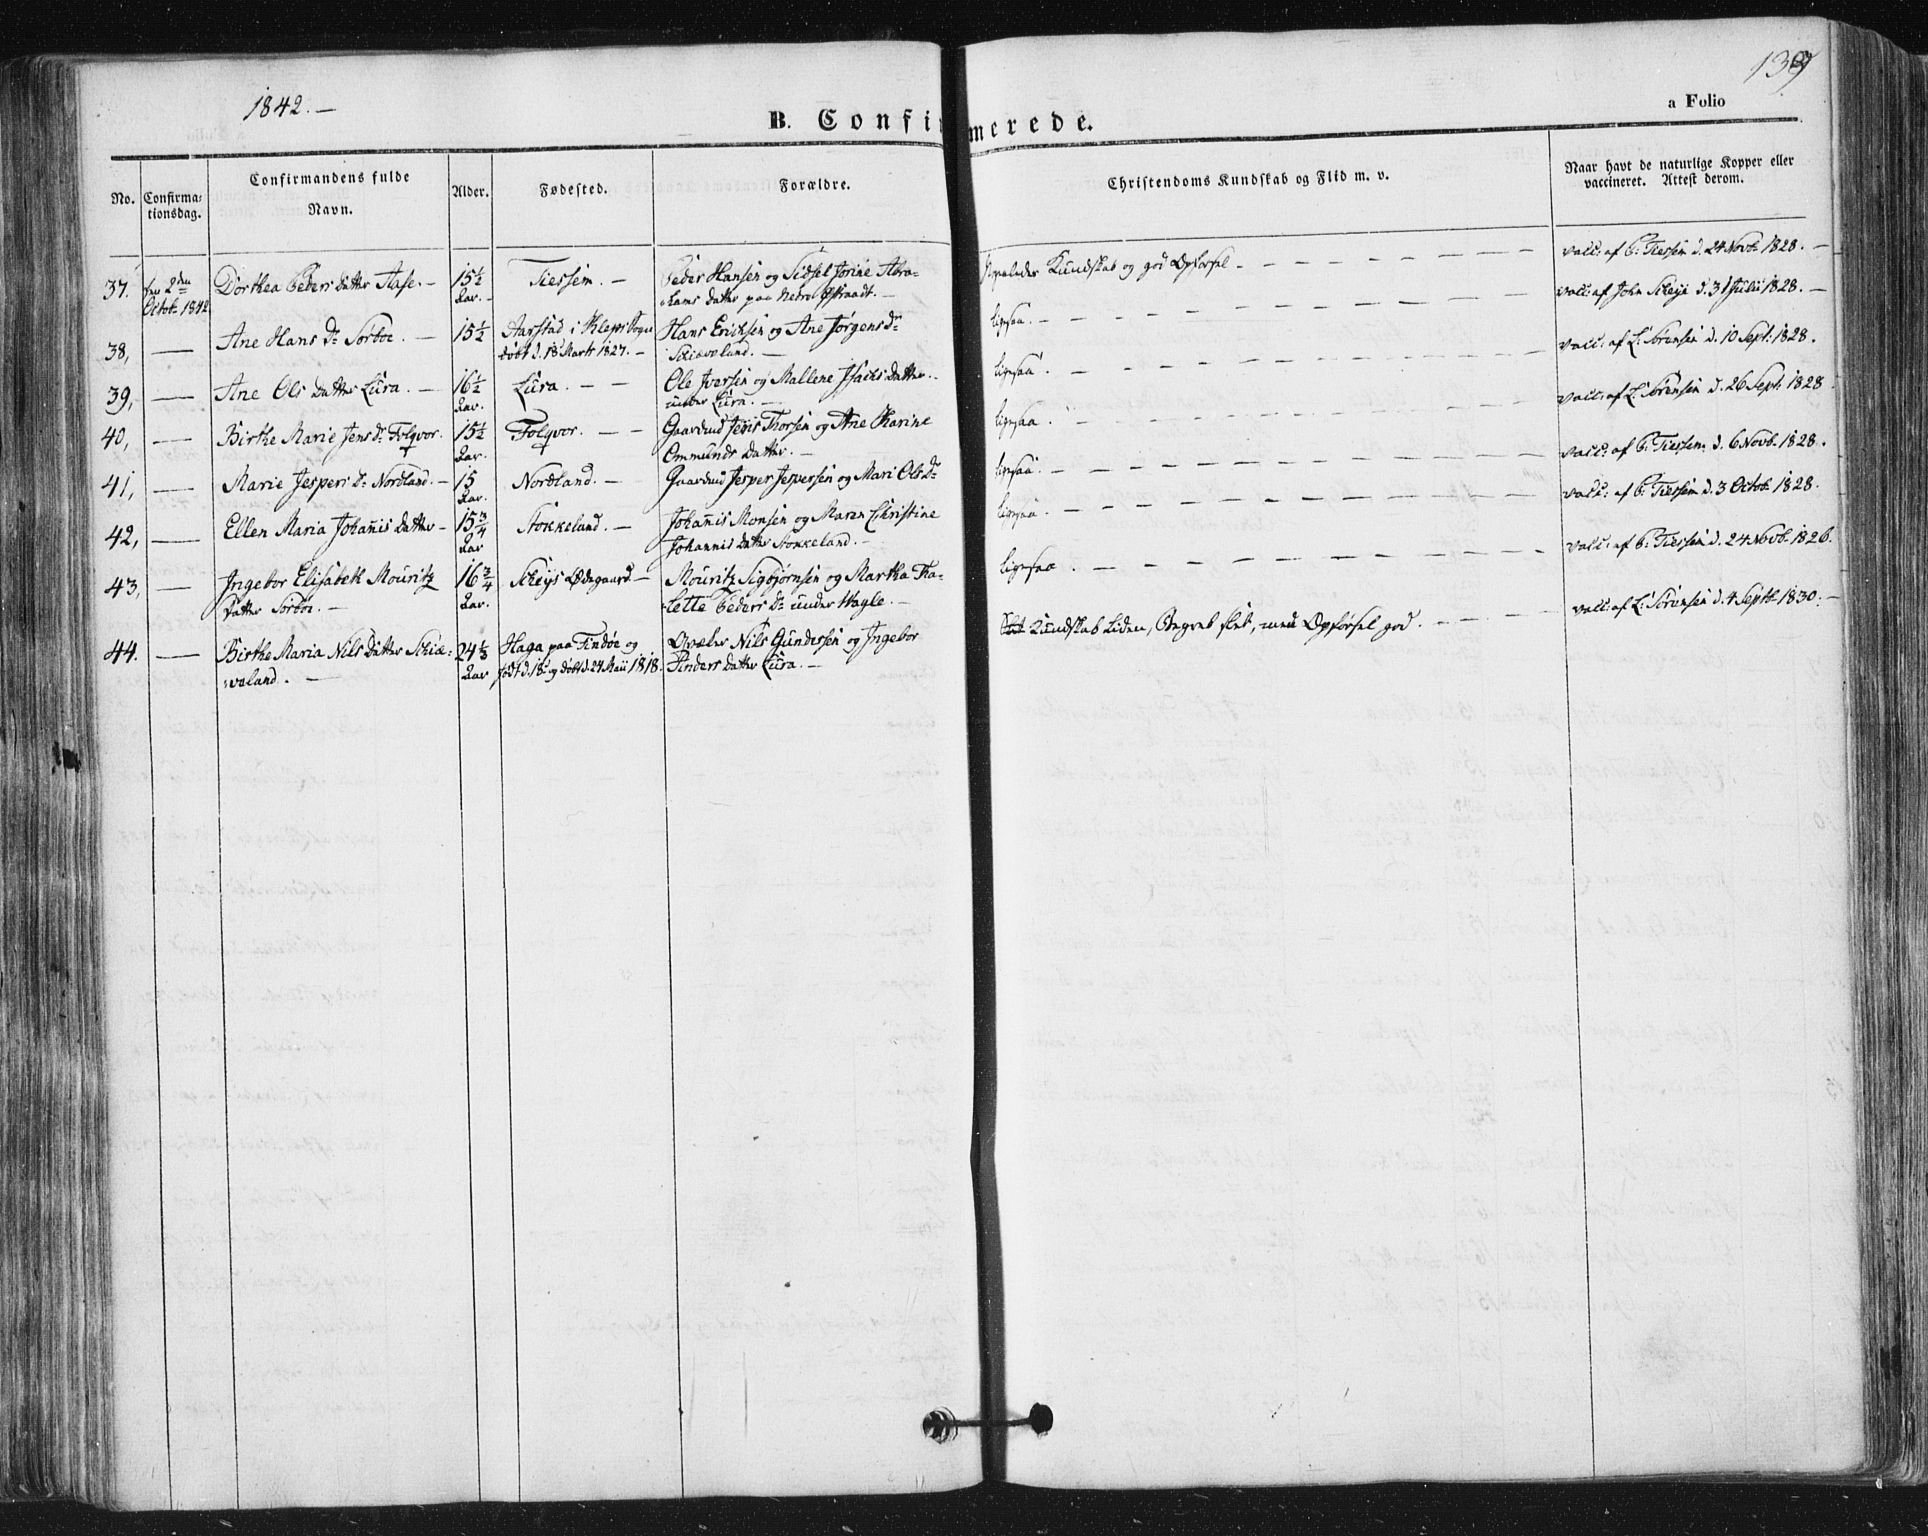 1842. —
139
B. Confirmerede.
a Folio
No.
Confirma-
tionsdag.
Confirmandens fulde
Navn.
Alder.
Fødested.
Forældre.
Christendoms Kundskab og Flid m. v.
Naar havt de naturlige Kopper eller
vaccineret. Attest derom.
37. den 2den Dorthea Peders Datter Aase. — 15½ Tiessem. — Peder Hansen og Sidsel Jorine Abra- Kundskab og god Opførsel — vacc: af P: Tiessem d. 24 Novb. 1828. —
Octob. 1842 Aar. — hams Datter paa Nedre Østraadt. —
38, — Ane Hans Dr Sørboe. — 15½ Aarstad i Kleps Sogn Hans Ericksen og Ane Jørgens Dr ligesaa. — vacc: af John Scheie d. 31 Julii 1828. —
døbt d. 18 Marts 1827. — Schiæveland. —
39, — Ane Ols Datter Lura. — 16½ Lura. — — Ole Iversen og Mallene Isachs Datter. ligesaa. — vacc: af L: Sørensen d. 10 Sept: 1828.
Aar. under Lura. —
40, — Birthe Marie Jens Dr Folqvor. 15½ Folqvor. — — Gaardmd Jens Thorsen og Ane Karine ligesaa. — vacc: af L: Sørensen d. 26 Sept: 1828
Aar. Ommunds Datter. —
41, — Marie Jespers Dr Nordland. — 15 Nordland. — Gaardmd Jesper Jespersen og Mari Ols Dr ligesaa. — vacc: af P: Tiessem d. 6 Novb. 1828.
Aar.
42, — Ellen Maria Johannis Datter — 15¾ Stokkeland. — Johannis Monsen og Maren Christine ligesaa. — vacc: af P: Tiessem d. 3 Octob. 1828.
Aar Johannis Datter Stokkeland. —
43, — Ingebor Elisabeth Mouritz 16¾ Scheies Ødegaard. — Mouritz Sigbjørnsen og Martha Tha- ligesaa. — vacc: af P: Tiessem d. 24 Novb. 1826.
Datter Sørboe. — Aar. lette Peders Dr under Hagle. —
44. — Birthe Maria Nils Datter Schiæ- 24⅓ Haga paa Findøe og Nils Gundersen og Ingebor Kundskab liden, Begreb slet, men Opførsel god. — vacc: af L: Sørensen d. 4 Septb. 1830. —
veland. — Aar født d. 18 og døbt d. 24 Maii 1818. Anders Datter Lura. —